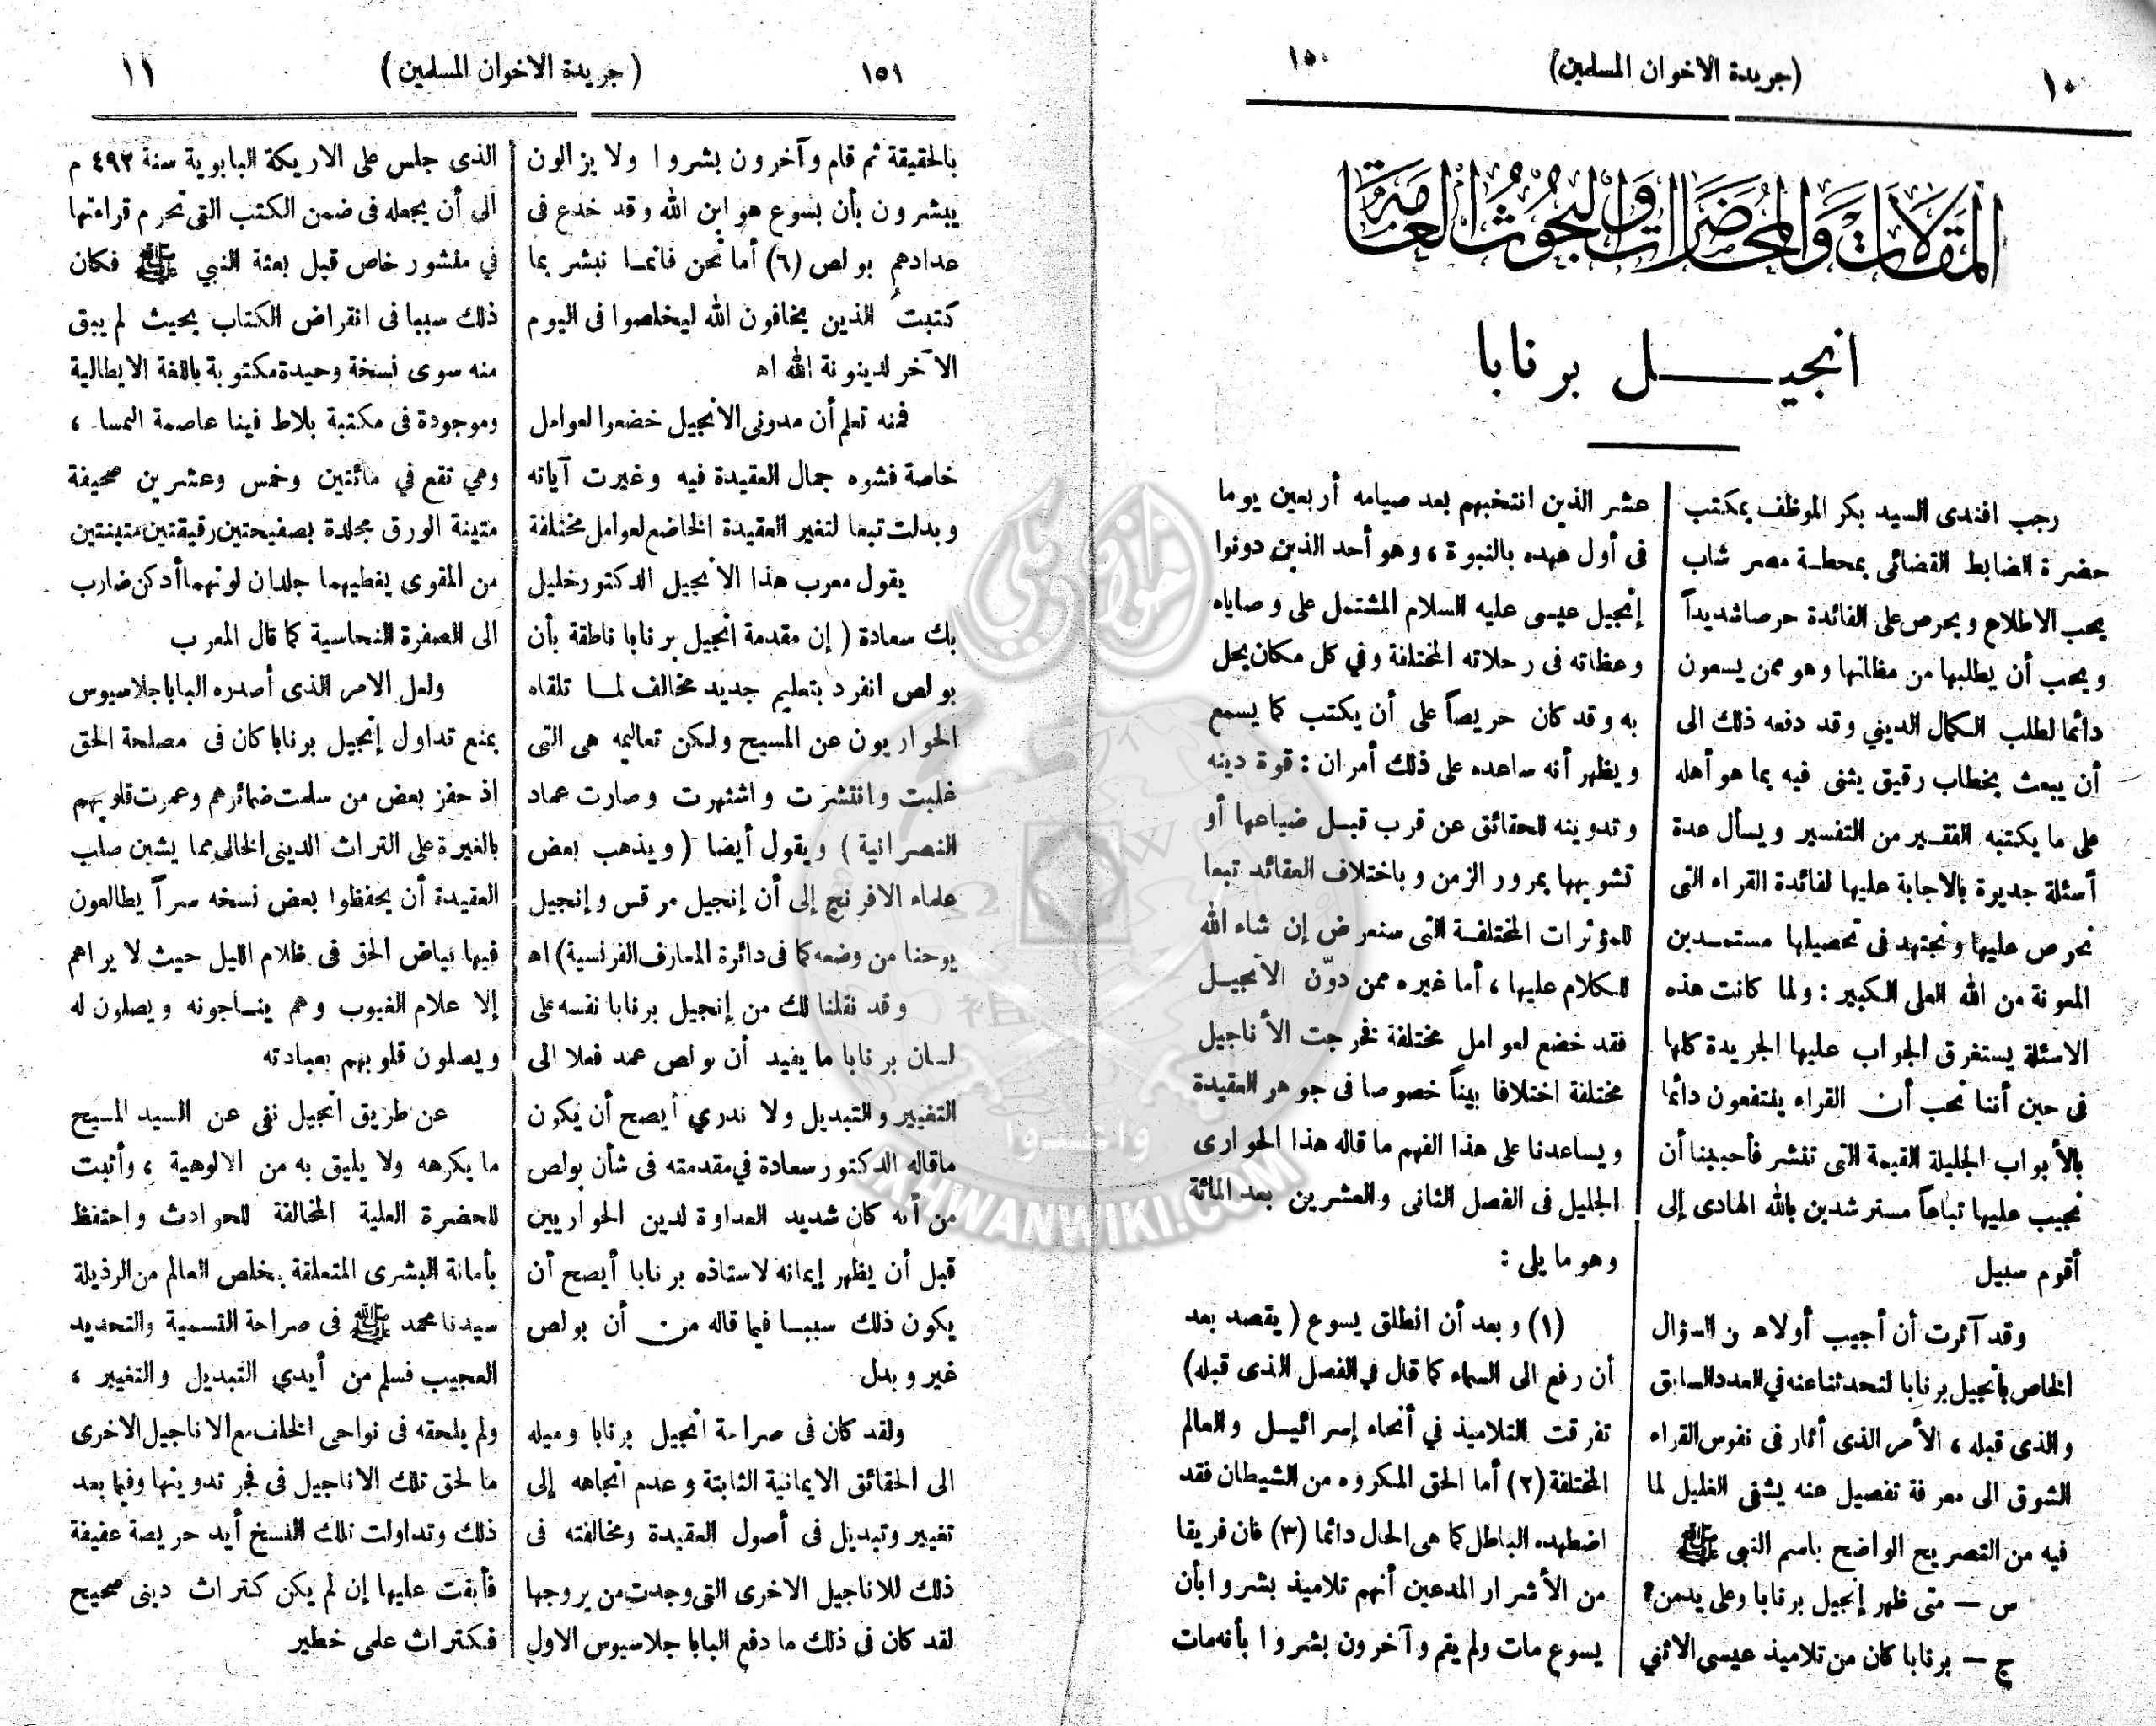 ١٠
(جريدة الاخوان المسلمين)
١٥٠
المقالات والمحاضرات والبحوث العامة
انجيل برنابا
رجب افندى السيد بكر الموظف بمكتب
حضرة الضابط القضائى بمحطة مصر شاب
يحب الاطلاع ويحرص على الفائدة حرصا شديداً
ويحب أن يطلبها من مظانها وهو ممن يسعون
دائما لطلب الكمال الديني وقد دفعه ذلك الى
أن يبعث بخطاب رقيق يثنى فيه بما هو أهله
على ما يكتبه الفقير من التفسير ويسأل عدة
أسئلة جديرة بالاجابة عليها لفائدة القراء التى
نحرص عليها ونجتهد فى تحصيلها مستمدين
المعونة من الله العلى الكبير : ولما كانت هذه
الاسئلة يستغرق الجواب عليها الجريدة كلها
فى حين أننا نحب أن القراء ينتفعون دائما
بالأبواب الجليلة القيمة التى تنشر فأحببنا أن
نجيب عليها تباعاً مسترشدين بالله الهادى إلى
أقوم سبيل
وقد آثرت أن أجيب أولا عن السؤال
الخاص بأنجيل برنابا لتحدثنا عنه في العدد السابق
والذى قبله ، الأمر الذى أثار فى نفوس القراء
الشوق الى معرفة تفصيل عنه يشفى الغليل لما
فيه من التصريح الواضح باسم النبى ﷺ
س — متى ظهر إنجيل برنابا وعلى يد من ؟
ج — برنابا كان من تلاميذ عيسى الاثنى
عشر الذين انتخبهم بعد صيامه أربعين يوما
فى أول عهده بالنبوة ، وهو أحد الذين دونوا
إنجيل عيسى عليه السلام المشتمل على وصاياه
وعظاته فى رحلاته المختلفة وفي كل مكان يحل
به وقد كان حريصاً على أن يكتب كما يسمع
ويظهر أنه ساعده على ذلك أمران : قوة دينه
وتدوينه للحقائق عن قرب قبل ضياعها أو
تشويهها بمرور الزمن وباختلاف العقائد تبعا
للمؤثرات المختلفة التى سنعرض إن شاء الله
للكلام عليها ، أما غيره ممن دوّن الانجيل
فقد خضع لعوامل مختلفة فخرجت الأناجيل
مختلفة اختلافا بيناً خصوصا فى جوهر العقيدة
ويساعدنا على هذا الفهم ما قاله هذا الحوارى
الجليل فى الفصل الثانى والعشرين بعد المائة
وهو ما يلى :
(١) وبعد أن انطلق يسوع ( يقصد بعد
أن رفع الى السماء كما قال في الفصل الذى قبله )
تفرقت التلاميذ في أنحاء إسرائيل والعالم
المختلفة (٢) أما الحق المكروه من الشيطان فقد
اضطهده الباطل كما هى الحال دائما (٣) فان فريقا
من الأشرار المدعين أنهم تلاميذ بشروا بأن
يسوع مات ولم يقم وآخرون بشروا بأنه مات
١٥١
(جريدة الاخوان المسلمين)
١١
بالحقيقة ثم قام وآخرون بشروا ولا يزالون
يبشرون بأن يسوع هو ابن الله وقد خدع فى
عدادهم بولص (٦) أما نحن فانما نبشر بما
كتبتُ الذين يخافون الله ليخلصوا فى اليوم
الآخر لدينونة الله اه
فمنه تعلم أن مدونى الانجيل خضعوا لعوامل
خاصة فشوه جمال العقيدة فيه وغيرت آياته
وبدلت تبعا لتغير العقيدة الخاضع لعوامل مختلفة
يقول معرب هذا الانجيل الدكتور خليل
بك سعادة ( إن مقدمة انجيل برنابا ناطقة بأن
بولص انفرد بتعليم جديد مخالف لما تلقاه
الحواريون عن المسيح ولكن تعاليمه هى التى
غلبت وانتشرت واشتهرت وصارت عماد
النصرانية ) ويقول أيضا ( ويذهب بعض
علماء الافرنج إلى أن إنجيل مرقس وإنجيل
يوحنا من وضعه كما فى دائرة المعارف الفرنسية ) اه
وقد نقلنا لك من إنجيل برنابا نفسه على
لسان برنابا ما يفيد أن بولص عمد فعلا الى
التغيير والتبديل ولا ندري أيصح أن يكون
ماقاله الدكتور سعادة في مقدمته فى شأن بولص
من أنه كان شديد العداوة لدين الحواريين
قبل أن يظهر إيمانه لاستاذه برنابا أيصح أن
يكون ذلك سببا فيما قاله من أن بولص
غير وبدل
ولقد كان فى صراحة انجيل برنابا وميله
الى الحقائق الايمانية الثابتة وعدم اتجاهه إلى
تغيير وتبديل فى أصول العقيدة ومخالفته فى
ذلك للاناجيل الاخرى التى وجدت من يروجها
لقد كان فى ذلك ما دفع البابا جلاسيوس الاول
الذى جلس على الاريكة البابوية سنة ٤٩٢ م
الى أن يجعله فى ضمن الكتب التى تحرم قراءتها
في منشور خاص قبل بعثة النبي ﷺ فكان
ذلك سببا فى انقراض الكتاب بحيث لم يبق
منه سوى نسخة وحيدة مكتوبة باللغة الايطالية
وموجودة فى مكتبة بلاط فينا عاصمة النمسا ،
وهي تقع في مائتين وخمس وعشرين صحيفة
متينة الورق مجلدة بصفيحتين رقيقتين متينتين
من المقوى يغطيهما جلدان لونهما أدكن ضارب
الى الصفرة النحاسية كما قال المعرب
ولعل الامر الذى أصدره البابا جلاسيوس
بمنع تداول إنجيل برنابا كان فى مصلحة الحق
اذ حفز بعض من سلمت ضمائرهم وعمرت قلوبهم
بالغيرة على التراث الدينى الخالى مما يشين صلب
العقيدة أن يحفظوا بعض نسخه سراً يطالعون
فيها بياض الحق فى ظلام الليل حيث لا يراهم
إلا علام الغيوب وهم يناجونه ويصلون له
ويصلون قلوبهم بعبادته
عن طريق انجيل نفى عن السيد المسيح
ما يكرهه ولا يليق به من الالوهية ، وأثبت
للحضرة العلية المخالفة للحوادث واحتفظ
بأمانة البشرى المتعلقة بمخلص العالم من الرذيلة
سيدنا محمد ﷺ فى صراحة التسمية والتحديد
العجيب فسلم من أيدي التبديل والتغيير ،
ولم يلحقه فى نواحى الخلف مع الاناجيل الاخرى
ما لحق تلك الاناجيل فى فجر تدوينها وفيما بعد
ذلك وتداولت تلك النسخ أيد حريصة عفيفة
فأبقت عليها إن لم يكن كتراث دينى صحيح
فكتراث علمى خطير
IKHWANWIKI.COM